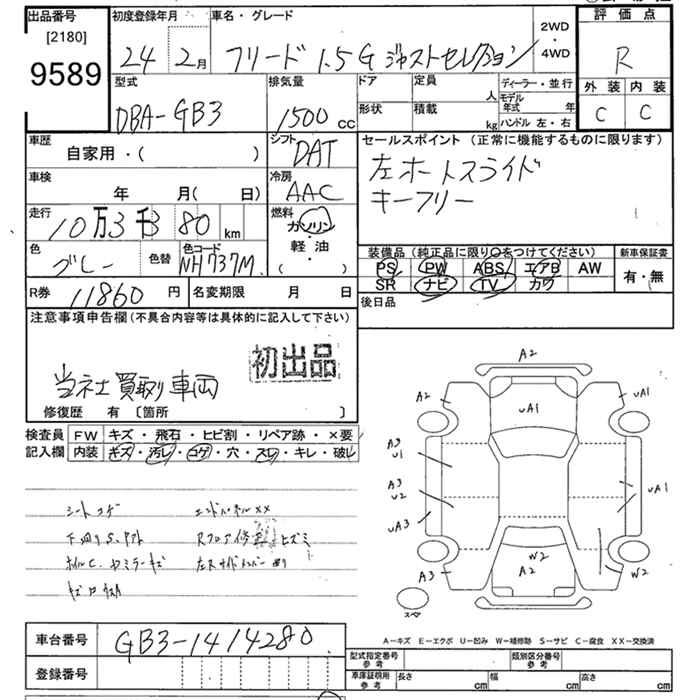 出品番号 初度登録年月 車名・グレード 2WD・4WD 評価点
[2180]
9589 24年 2月 フリード 1.5 G ジャストセレクション R
型式 排気量 ドア 定員 人 ディーラー・並行 外装 内装
DBA-GB3 1500cc 形状 積載 kg モデル年式 年 C C
ハンドル 左・右
車歴 シフト セールスポイント (正常に機能するものに限ります)
自家用・( ) DAT 左オートスライド
車検 冷房 キーフリー
年 月( 日) AAC
走行 燃料
10万3千380km ガソリン・軽油・( )
色 色替 色コード 装備品 (純正品に限り○をつけてください) 新車保証書
グレー NH737M PS PW ABS エアB AW 有・無
SR ナビ TV カワ
R券 11860円 名変期限 月 日 後日品
注意事項申告欄(不具合内容等は具体的に記入して下さい)
初出品
当社買取り車両
修復歴 有 〔箇所 〕
検査員記入欄 FW キズ・飛石・ヒビ割・リペア跡・×要
内装 キズ・汚レ・コゲ・穴・スレ・キレ・破レ
シートコゲ エンドパネルXX
下回りS、 Rフロア修正 ヒズミ
ホイルC、 ミラーキズ
A2
A2 UA1 UA1
A3
U1
A3
U2 UA1
UA3
W2 W2
A3 A2
スペア
A-キズ E-エクボ U-凹み W-補修跡 S-サビ C-腐食 XX-交換済
車台番号 GB3-1414280
登録番号
型式指定番号 参考 類別区分番号 参考
車庫証明用 参考 長さ cm 幅 cm 高さ cm